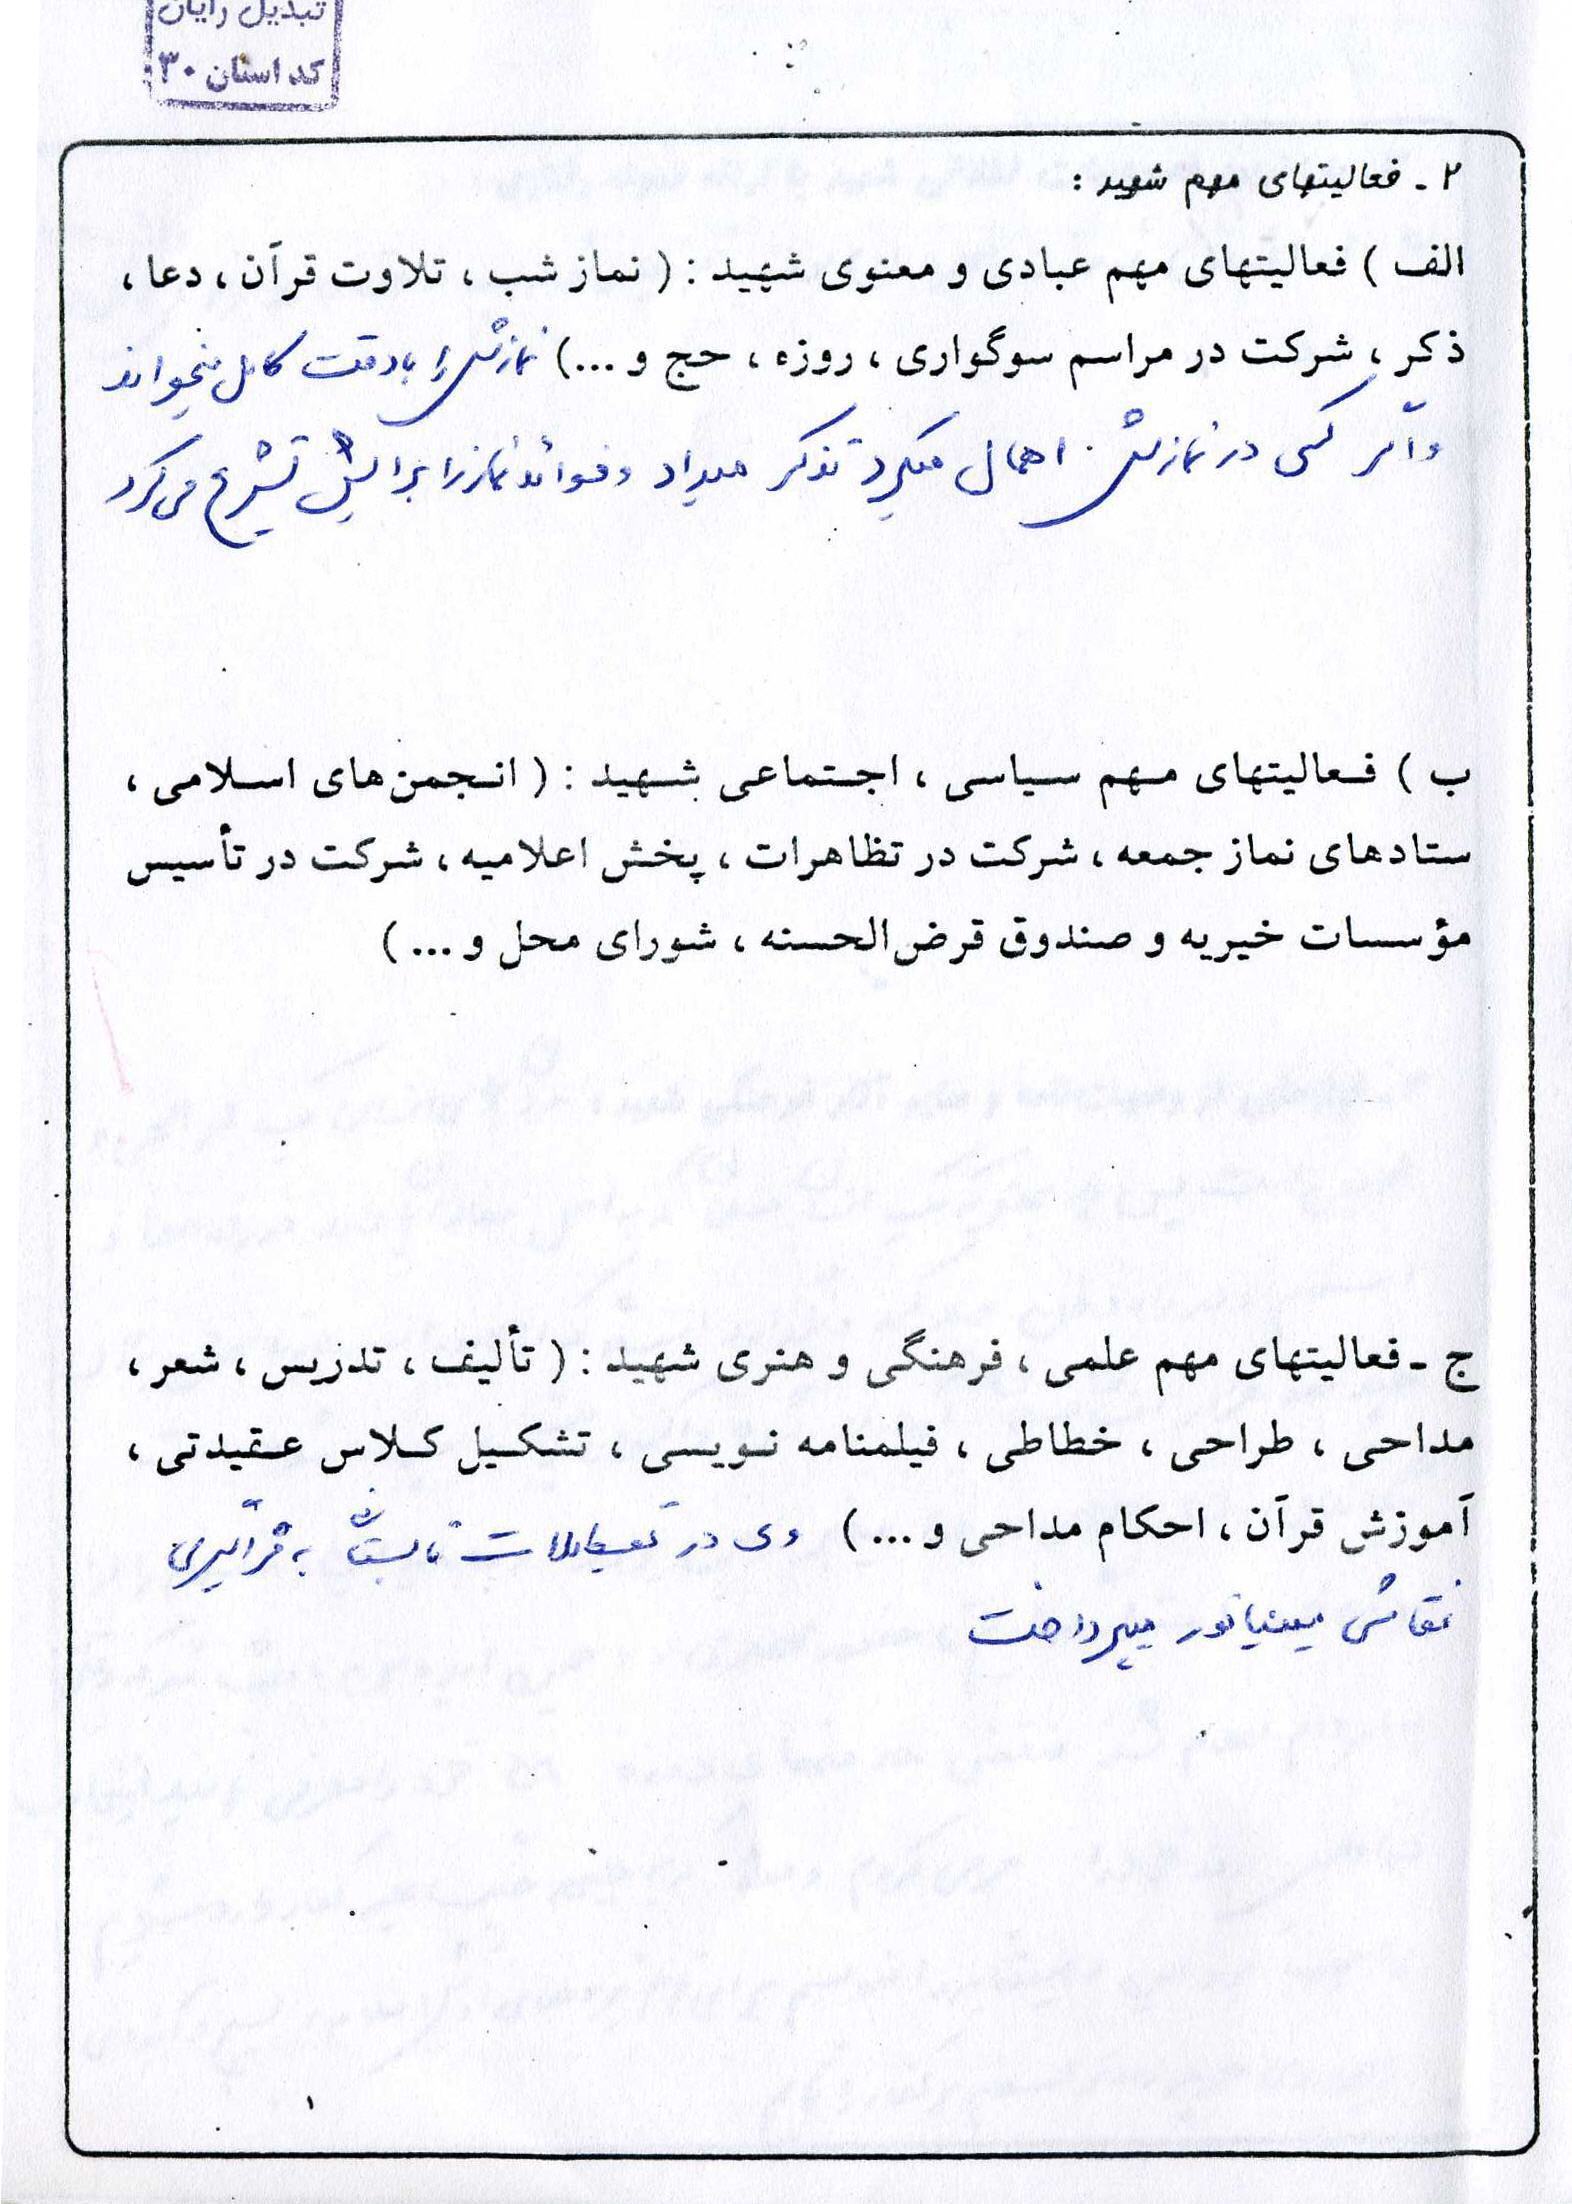 تبدیل رایان
کد استان ۳۰
۲ - فعالیتهای مهم شهید :
الف ) فعالیتهای مهم عبادی و معنوی شهید : ( نماز شب ، تلاوت قرآن ، دعا ،
ذکر ، شرکت در مراسم سوگواری ، روزه ، حج و ...) نمازش را با دقت کامل میخواند
و اگر کسی در نمازش اهمال میکرد تذکر میداد و فوائد نماز را برایش تشریح می کرد
ب ) فعالیتهای مهم سیاسی ، اجتماعی شهید : ( انجمن‌های اسلامی ،
ستادهای نماز جمعه ، شرکت در تظاهرات ، پخش اعلامیه ، شرکت در تأسیس
مؤسسات خیریه و صندوق قرض‌الحسنه ، شورای محل و ... )
ج - فعالیتهای مهم علمی ، فرهنگی و هنری شهید : ( تألیف ، تدریس ، شعر ،
مداحی ، طراحی ، خطاطی ، فیلمنامه نویسی ، تشکیل کلاس عقیدتی ،
آموزش قرآن ، احکام مداحی و ... ) وی در تعطیلات تابستان به فراگیری
نقاشی مینیاتور میپرداخت